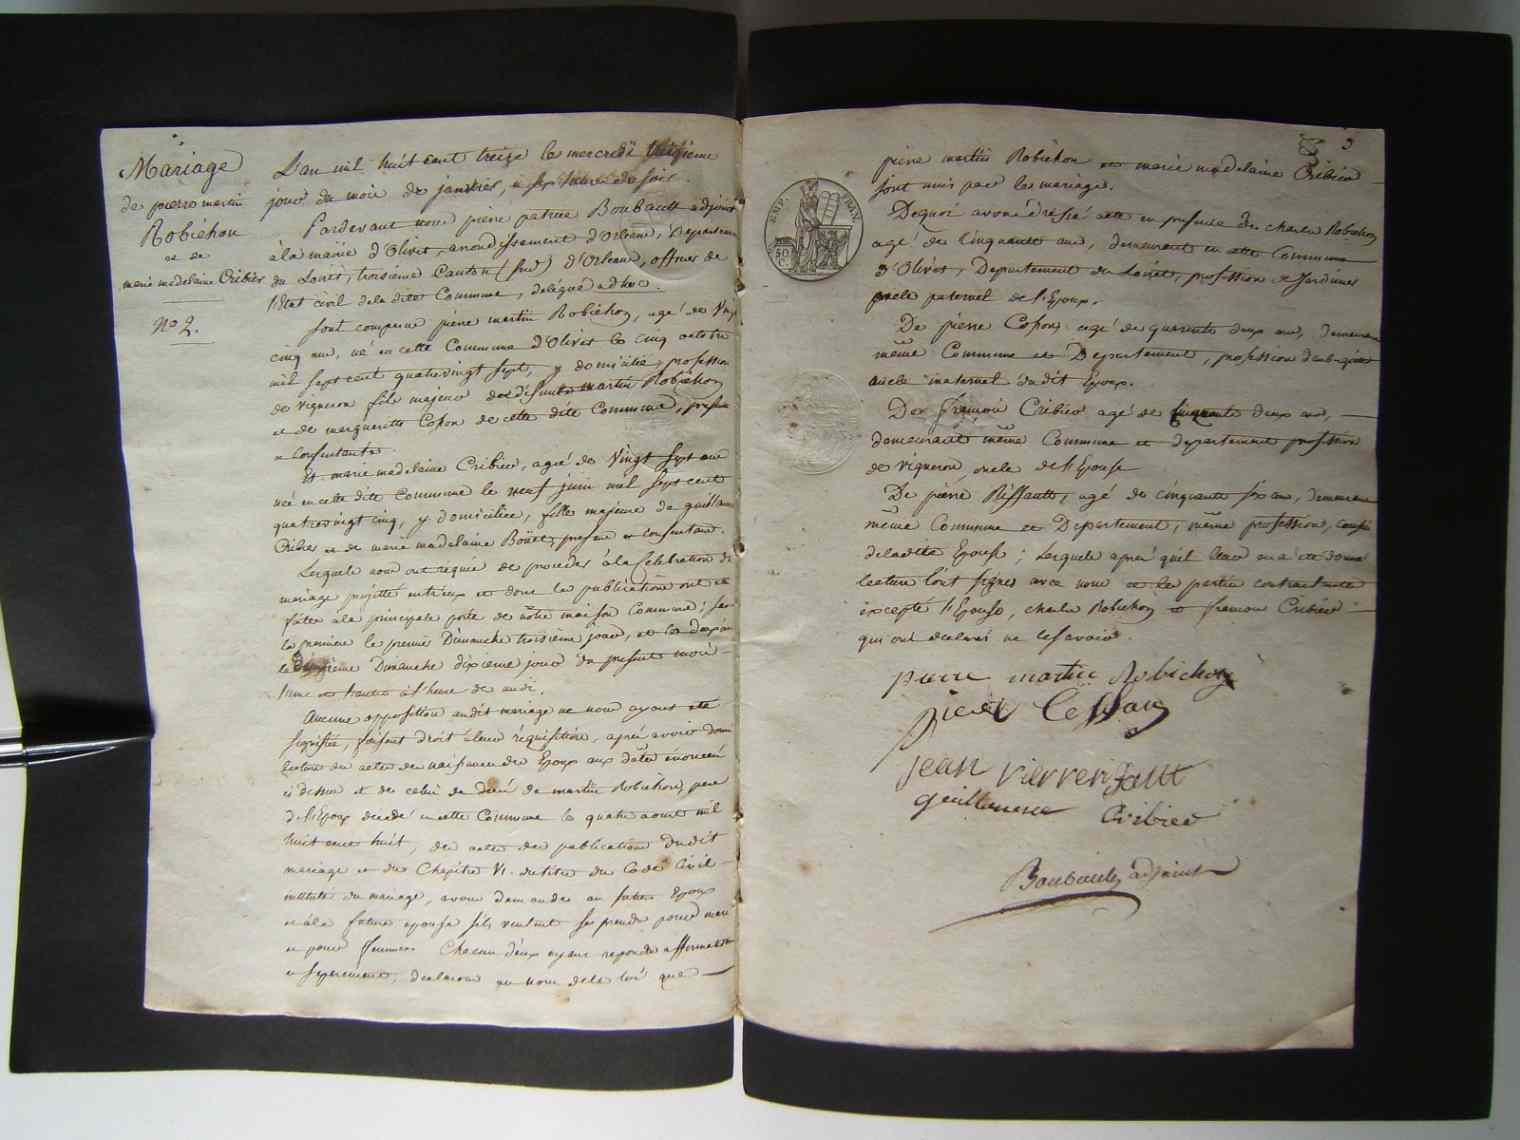 Mariage
de pierre martin
Robichon
et de
marie madelaine Cribier
No 2.
L'an mil huit cent treize le mercredi
jour du mois de janvier, a six heures du soir.
Pardevant nous pierre patrice Boubault adjoint
à la mairie d'Olivet, arondissement d'Orleans, Departement
du Loiret, troisième Canton (sud) d'Orleans, officier de
l'Etat civil de la dite Commune, délégué ad hoc.
sont comparus pierre martin Robichon, agé de Vingt
cinq ans, né en cette Commune d'Olivet le cinq octobre
mil sept cent quatrevingt sept, y domicilié, profession
de vigneron fils majeur de defunt martin Robichon
et de margueritte Cosson de cette dite Commune, presente
et consentante.
Et marie madelaine Cribier, agée de Vingt sept ans
née en cette dite Commune le neuf juin mil sept cent
quatrevingt cinq, y domiciliée, fille majeure de guillaume
Cribier et de marie madelaine presens et consentans.
Lesquels nous ont requis de proceder à la Celebration du
mariage projetté entr'eux et dont les publications ont été
faites à la principale porte de nôtre maison Commune; savoir
la premiere le premier Dimanche troisième jour, et la
le Dimanche dixieme jour du présent mois
à l'heure de midi.
Aucune opposition audit mariage ne nous ayant été
signifiée, faisant droit à leur réquisition, après avoir donné
lecture des actes de naissance des Epoux aux dates énoncées
ci dessus et de celui de décès de martin Robichon pere
de l'Epoux décédé en cette Commune le quatre aout mil
huit cent huit, des actes des publications dudit
mariage et du Chapitre VI. du titre du Code Civil
intitulé du mariage, avons demandé au futur Epoux
et à la future epouse s'ils veulent se prendre pour mari
et pour femme. Chacun d'eux ayant repondu affirmativement
et séparement, declarons au nom de la loi que
3
pierre martin Robichon et marie madelaine Cribier
sont unis par le mariage.
EMP. FRAN.
50
C.
De quoi avons dressé acte en présence de charles Robichon
agé de Cinquante ans, demeurant en cette Commune
d'Olivet, Departement du Loiret, profession de Jardinier
oncle paternel de l'Epoux.
De pierre Cosson agé de quarente deux ans, demeurant
même Commune et Departement, profession d'aubergiste
oncle maternel dudit Epoux.
De françois Cribier agé de Cinquante deux ans,
demeurant même Commune et departement profession
de vigneron, oncle de l'Epouse
De pierre Riffault, agé de cinquante six ans, demeurant
même Commune et Departement, même profession, cousin
de la dite Epouse; Lesquels après qu'il leur en a été donné
lecture l'ont signé avec nous et les parties contractantes
excepté l'Epouse, charles Robichon et francois Cribier
qui ont declaré ne le savoir.
pierre martin Robichon
pierre Cosson
jean pierre rifault
guillaume Cribier
Boubault adjoint